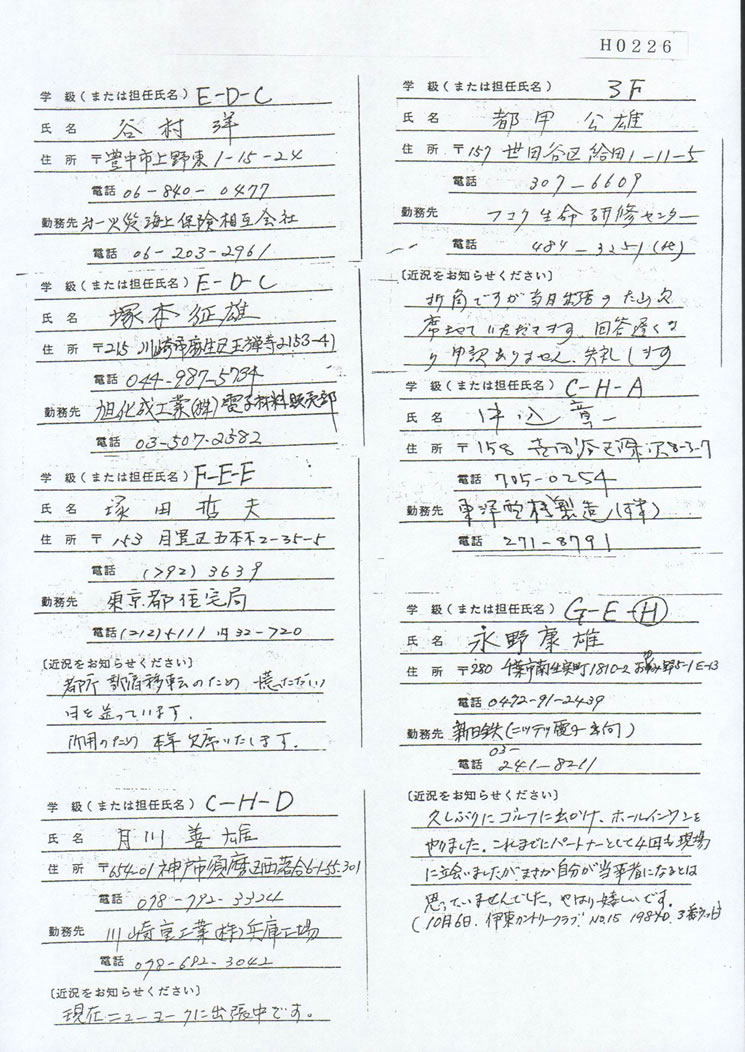 H0226
学 級(または担任氏名) E-D-C
氏 名 谷村 洋
住 所 〒豊中市上野東1-15-24
電話 06-840-0477
勤務先 第一火災海上保険相互会社
電話 06-203-2961
学 級(または担任氏名) E-D-C
氏 名 塚本 征雄
住 所 〒215 川崎市麻生区王禅寺2153-41
電話 044-987-5734
勤務先 旭化成工業(株)電子材料販売部
電話 03-507-2382
学 級(または担任氏名) F-E-E
氏 名 塚田 哲夫
住 所 〒153 目黒区五本木2-35-5
電話 (792) 3639
勤務先 東京都住宅局
電話 (212)5111 内32-720
〔近況をお知らせください〕
都庁 新宿移転のため 慌ただしい
日を送っています。
所用のため 本年 欠席いたします。
学 級(または担任氏名) C-H-D
氏 名 月川 善雄
住 所 〒654-01 神戸市須磨区西落合6-1-55-301
電話 078-792-3324
勤務先 川崎重工業(株)兵庫工場
電話 078-682-3042
〔近況をお知らせください〕
現在ニューヨークに出張中です。
学 級(または担任氏名) 3F
氏 名 都甲 公雄
住 所 〒157 世田谷区給田1-11-5
電話 307-6609
勤務先 フコク生命研修センター
電話 484-3251(代)
〔近況をお知らせください〕
折角ですが当日出張の
席させていただきます。回答遅くな
り申訳ありません。失礼します
学 級(または担任氏名) C-H-A
氏 名 中込 章一
住 所 〒158 世田谷区深沢8-3-7
電話 705-0254
勤務先 東洋 製造(株)
電話 271-8791
学 級(または担任氏名) G-E-H
氏 名 永野 康雄
住 所 〒280 千葉市南生実町1810-2 5-1E-13
電話 0472-91-2439
勤務先 新日鉄(ニッテツ電子出向)
電話 03-241-8211
〔近況をお知らせください〕
久しぶりにゴルフに出かけ、ホールインワンを
やりました。これまでにパートナーとして4回も現場
に立会いましたがまさか自分が当事者になるとは
思っていませんでした。やはり嬉しいです。
(10月6日. 伊東カントリークラブ NO.15 198YD. 3番ウッド)